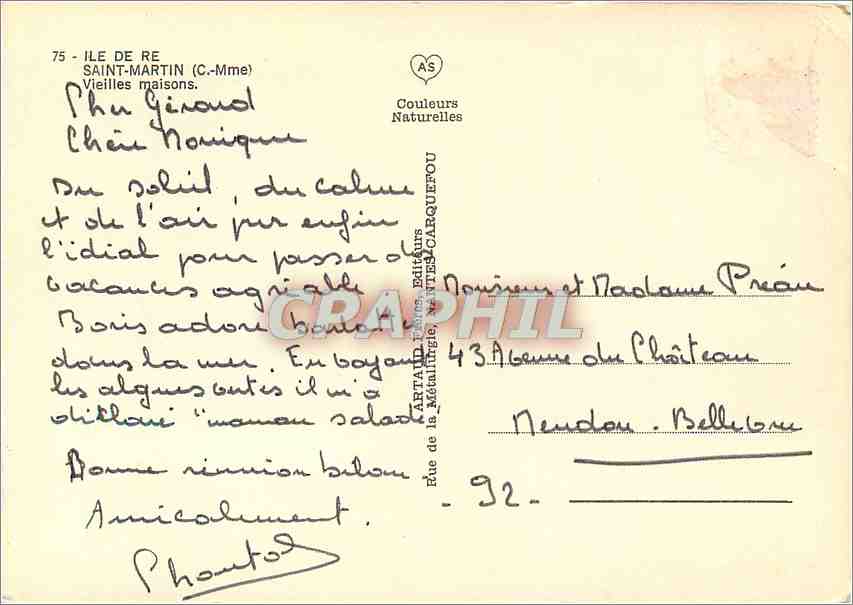 75 - ILE DE RE
SAINT-MARTIN (C.-Mme)
Vieilles maisons.
AS
Couleurs
Naturelles
Cher Gérard
Chère Monique
Du soleil, du calme
et de l'air pur enfin
l'idial pour passer de
vacances agriable
Boris adore
dans la mer. En voyant
les algues vertes il m'a
déclaré "maman salade"
Bonne réunion bilan.
Amicalement.
Chantal
ARTAUD Frères, Editeurs
Rue de la Métallurgie, NANTES-CARQUEFOU
Monsieur et Madame Préau
43 Avenue du Château
Meudon - Bellevue
- 92 -
CPAPHIL